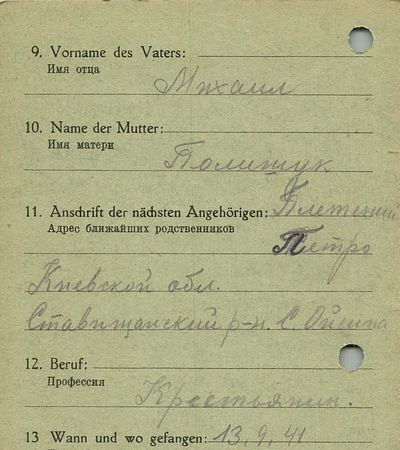 9. Vorname des Vaters:
Имя отца
Михаил
10. Name der Mutter:
Имя матери
Полищук
11. Anschrift der nächsten Angehörigen:
Адрес ближайших родственников
Петро
Киевской обл.
Ставищанский р-н. с.
12. Beruf:
Профессия
Крестьянин.
13 Wann und wo gefangen: 13.9.41